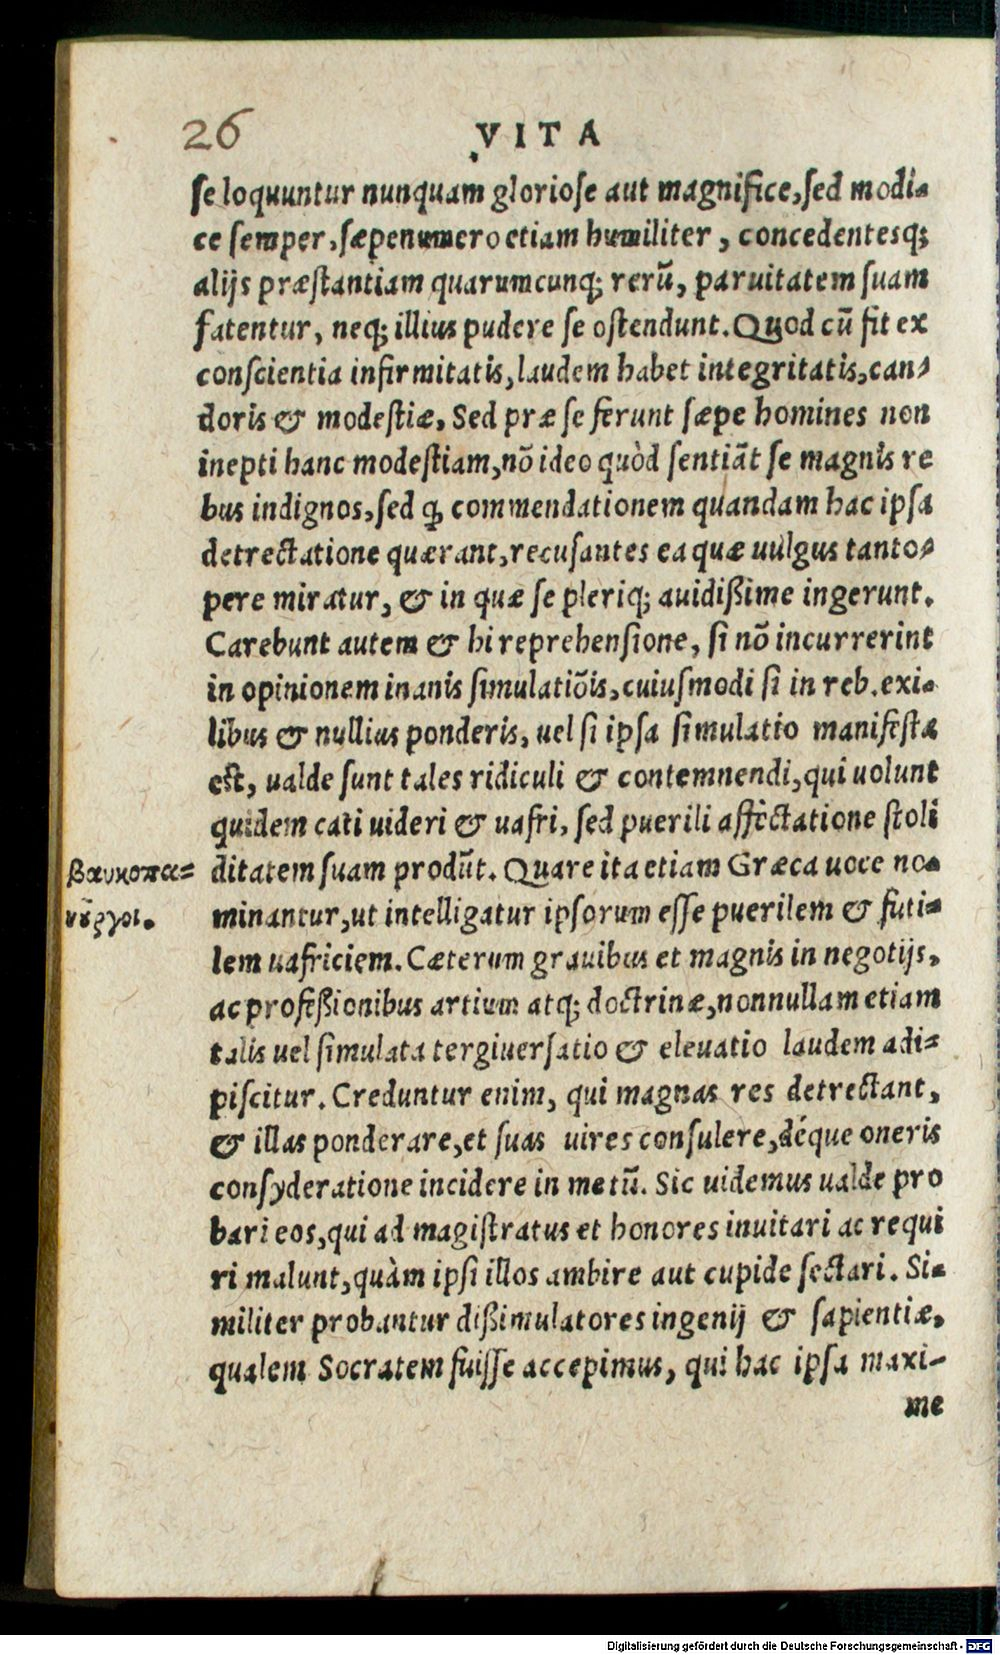 26
VITA
se loquuntur nunquam gloriose aut magnifice, sed modi-
ce semper, sæpenumero etiam humiliter, concedentesq;
alijs præstantiam quarumcunq; rerũ, paruitatem suam
fatentur, neq; illius pudere se ostendunt. Quod cũ fit ex
conscientia infirmitatis, laudem habet integritatis, can-
doris & modestiæ, Sed præ se ferunt sæpe homines non
inepti hanc modestiam, nõ ideo quòd sentiãt se magnis re
bus indignos, sed ꝙ commendationem quandam hac ipsa
detrectatione quærant, recusantes ea quæ uulgus tanto-
pere miratur, & in quæ se pleriq; auidißime ingerunt.
Carebunt autem & hi reprehensione, si nõ incurrerint
in opinionem inanis simulatiõis, cuiusmodi si in reb. exi-
libus & nullius ponderis, uel si ipsa simulatio manifesta
est, ualde sunt tales ridiculi & contemnendi, qui uolunt
quidem cati uideri & uafri, sed puerili affectatione stoli
βαυκοπα=
ditatem suam prodũt. Quare ita etiam Græca uoce no-
νȣ͂ργοι.
minantur, ut intelligatur ipsorum esse puerilem & futi-
lem uafriciem. Cæterum grauibus et magnis in negotijs,
ac profeßionibus artium atq; doctrinæ, nonnullam etiam
talis uel simulata tergiuersatio & eleuatio laudem adi-
piscitur. Creduntur enim, qui magnas res detrectant,
& illas ponderare, et suas uires consulere, déque oneris
consyderatione incidere in metũ. Sic uidemus ualde pro
bari eos, qui ad magistratus et honores inuitari ac requi
ri malunt, quàm ipsi illos ambire aut cupide sectari. Si-
militer probantur dißimulatores ingenij & sapientiæ,
qualem Socratem fuisse accepimus, qui hac ipsa maxi-
me
Digitalisierung gefördert durch die Deutsche Forschungsgemeinschaft - DFG